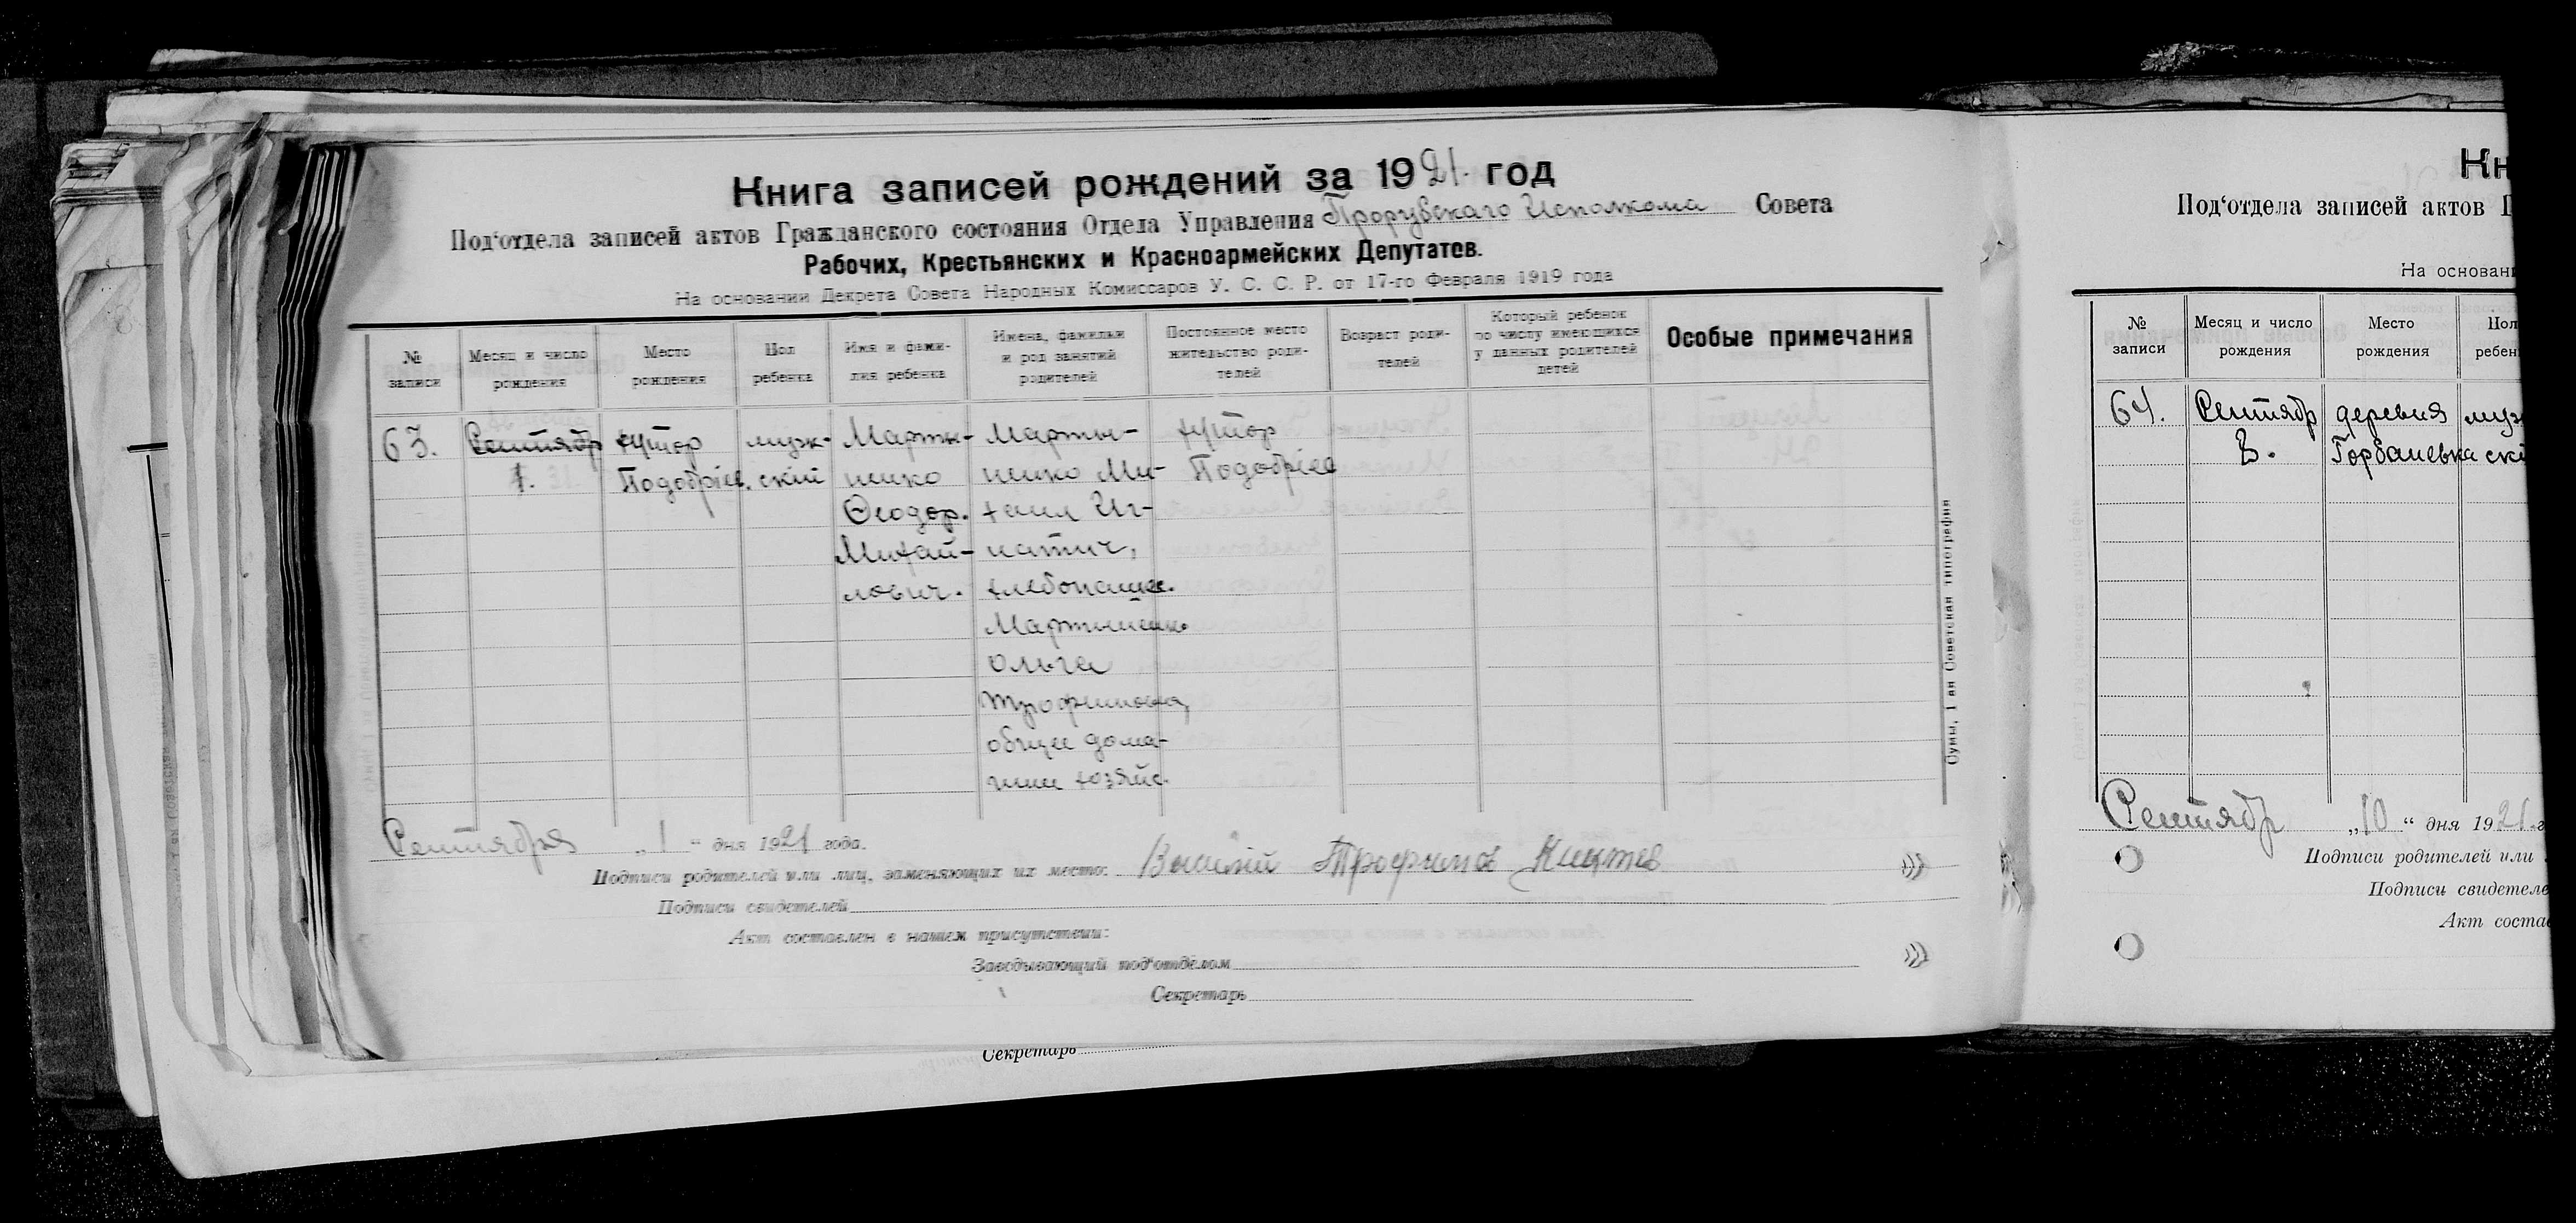 Книга записей рождений за 1921. год
Под‘отдела записей актов Гражданского состояния Отдела Управления Прорувскаго Исполкома Совета
Рабочих, Крестьянских и Красноармейских Депутатов.
На основании Декрета Совета Народных Комиссаров У. С. С. Р. от 17-го Февраля 1919 года
№ записи
Месяц и число рождения
Место рождения
Пол ребенка
Имя и фамилия ребенка
Имена, фамилии и род занятий родителей
Постоянное место жительство родителей
Возраст родителей
Который ребенок по числу имеющихся у данных родителей детей
Особые примечания
63.
Сентябр
1.
хутор
Подобріев.
муж-
скій
Марты-
ненко
Ѳеодор.
Михай-
лович.
Марты-
ненко Ми-
хаил Иг-
натич,
хлебопаше.
Мартыненко
Ольга
Трофимова,
общее дома-
шнее хозяйс.
хутор
Подобріев
Сумы, 1 ая Советская типография
Сентября „1“ дня 1921 года.
Подписи родителей или лиц, заменяющих их место: Трофимов
Подписи свидетелей
Акт составлен в нашем присутствии:
Заведывающий под‘отделом
Секретарь
Секретарь
Кн
Под‘отдела записей актов Г
На основани
№ записи
Месяц и число рождения
Место рождения
Пол
ребен
64.
Сентябр
3.
деревня
Горбаневка
муж
скі
Сентябр „10“ дня 1921.г
Подписи родителей или
Подписи свидетеле
Акт состав